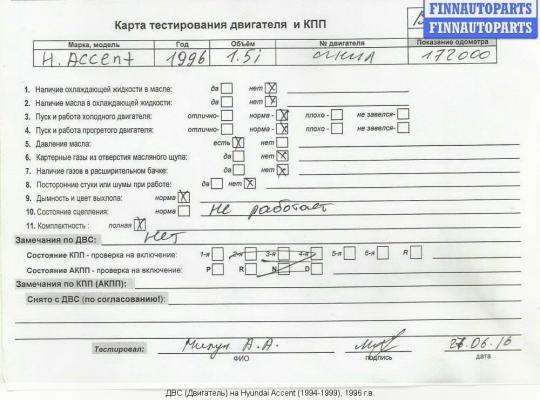 FINNAUTOPARTS
FINNAUTOPARTS
Карта тестирования двигателя и КПП
Марка, модель Год Объём № двигателя Показание одометра
H. Accent 1996 1.5i 172000
1. Наличие охлаждающей жидкости в масле: да нет X
2. Наличие масла в охлаждающей жидкости: да нет X
3. Пуск и работа холодного двигателя: отлично- норма - X плохо - не завелся-
4. Пуск и работа прогретого двигателя: отлично- норма - X плохо - не завелся-
5. Давление масла: есть X нет
6. Картерные газы из отверстия масляного щупа: да нет X
7. Наличие газов в расширительном бачке: да нет X
8. Посторонние стуки или шумы при работе: да нет X
9. Дымность и цвет выхлопа: норма X
10. Состояние сцепления: норма не работает
11. Комплектность: полная X
Замечания по ДВС: нет
Состояние КПП - проверка на включение: 1-я 2-я 3-я 4-я 5-я 6-я R
Состояние АКПП - проверка на включение: P R N D
Замечания по КПП (АКПП):
Снято с ДВС (по согласованию!):
Тестировал: А.А. 06.16
ФИО подпись дата
ДВС (Двигатель) на Hyundai Accent (1994-1999), 1996 г.в.